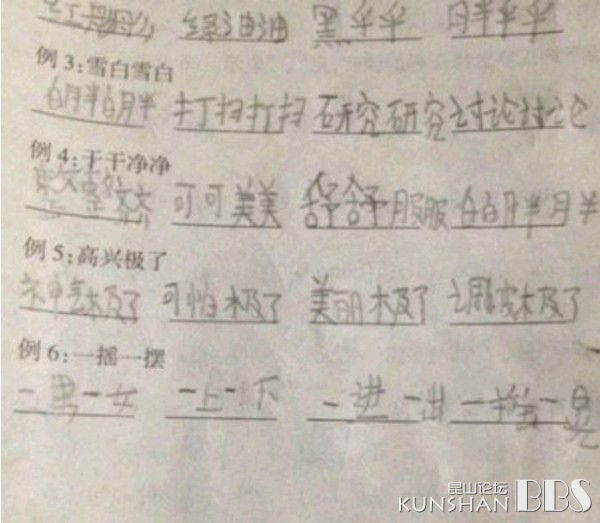 绿油油 黑乎乎 胖乎乎
例3:雪白雪白
白胖白胖 打扫打扫 研究研究 讨论讨论
例4:干干净净
可可美美 舒舒服服 白白胖胖
例5:高兴极了
神奇极了 可怕极了 美丽极了 调皮极了
例6:一摇一摆
一男一女 一上一下 一进一出
昆山论坛
KUNSHAN BBS